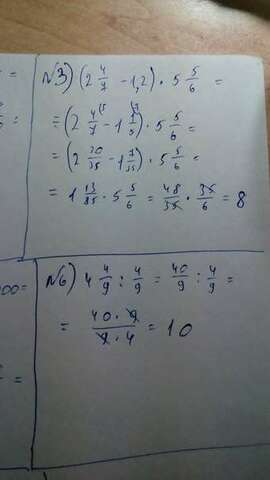 N3) (2 4/7 - 1,2) · 5 5/6 =
= (2 4/7 - 1 1/5) · 5 5/6 =
= (2 20/35 - 1 7/35) · 5 5/6 =
= 1 13/35 · 5 5/6 = 48/35 · 35/6 = 8
N6) 4 4/9 : 4/9 = 40/9 : 4/9 =
= 40 · 9 / 9 · 4 = 10